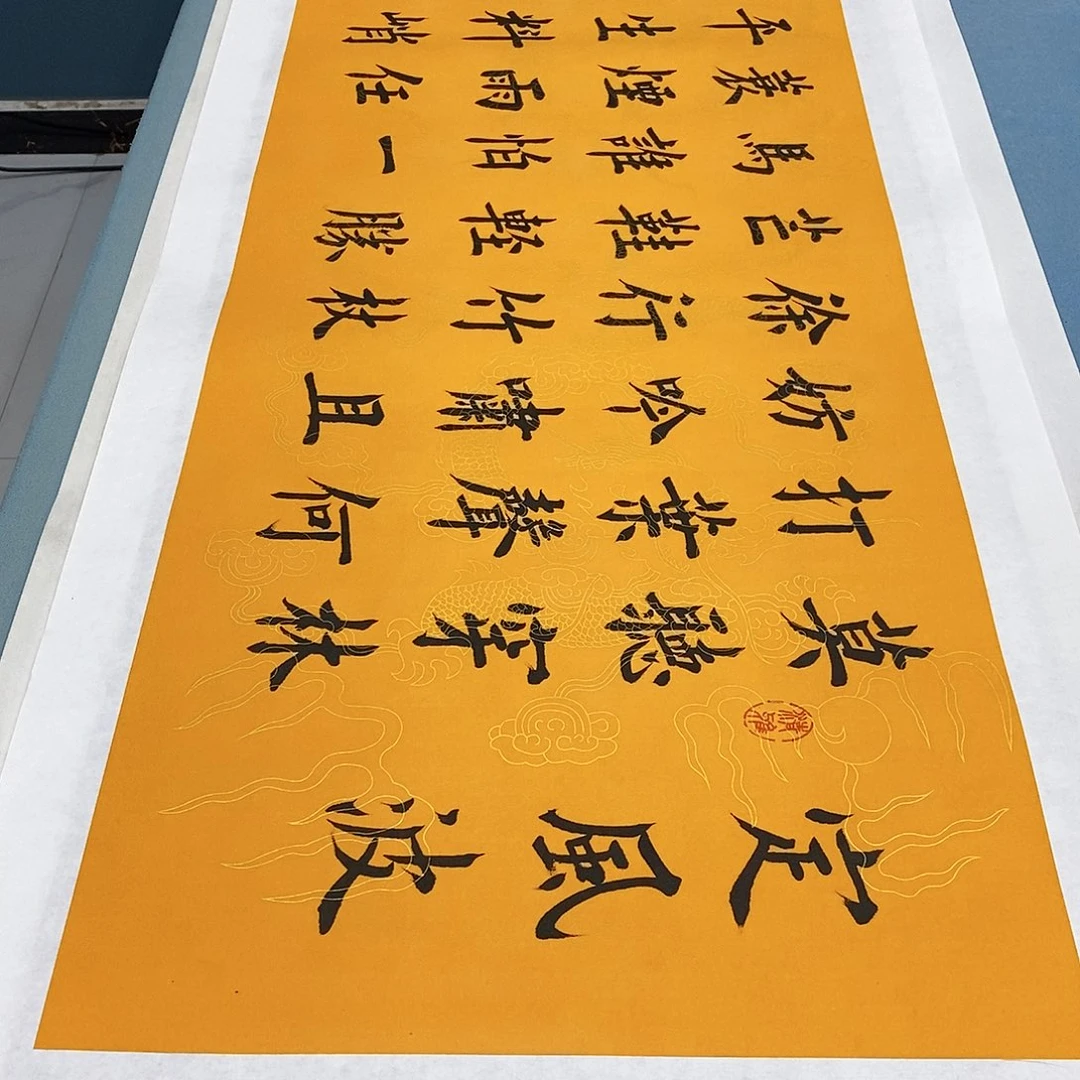 定風波
莫聽穿林
打葉聲何
妨吟嘯且
徐行竹杖
芒鞋輕勝
馬誰怕一
蓑煙雨任
平生料峭